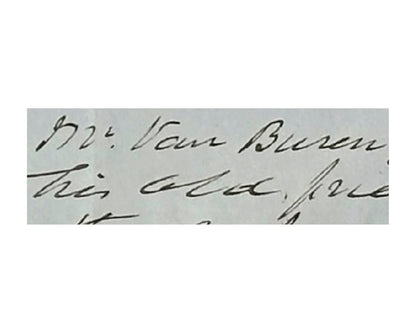 Mr. Van Buren
his old frie